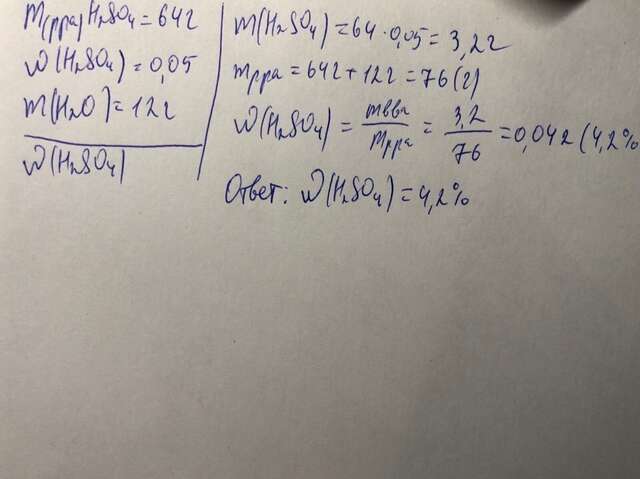 m(рра)H₂SO₄=64г
ω(H₂SO₄)=0,05
m(H₂O)=12г
ω(H₂SO₄)
m(H₂SO₄)=64·0,05=3,2г
mрра=64г+12г=76(г)
ω(H₂SO₄)=mвва/mрра=3,2/76=0,042(4,2%
Ответ: ω(H₂SO₄)=4,2%